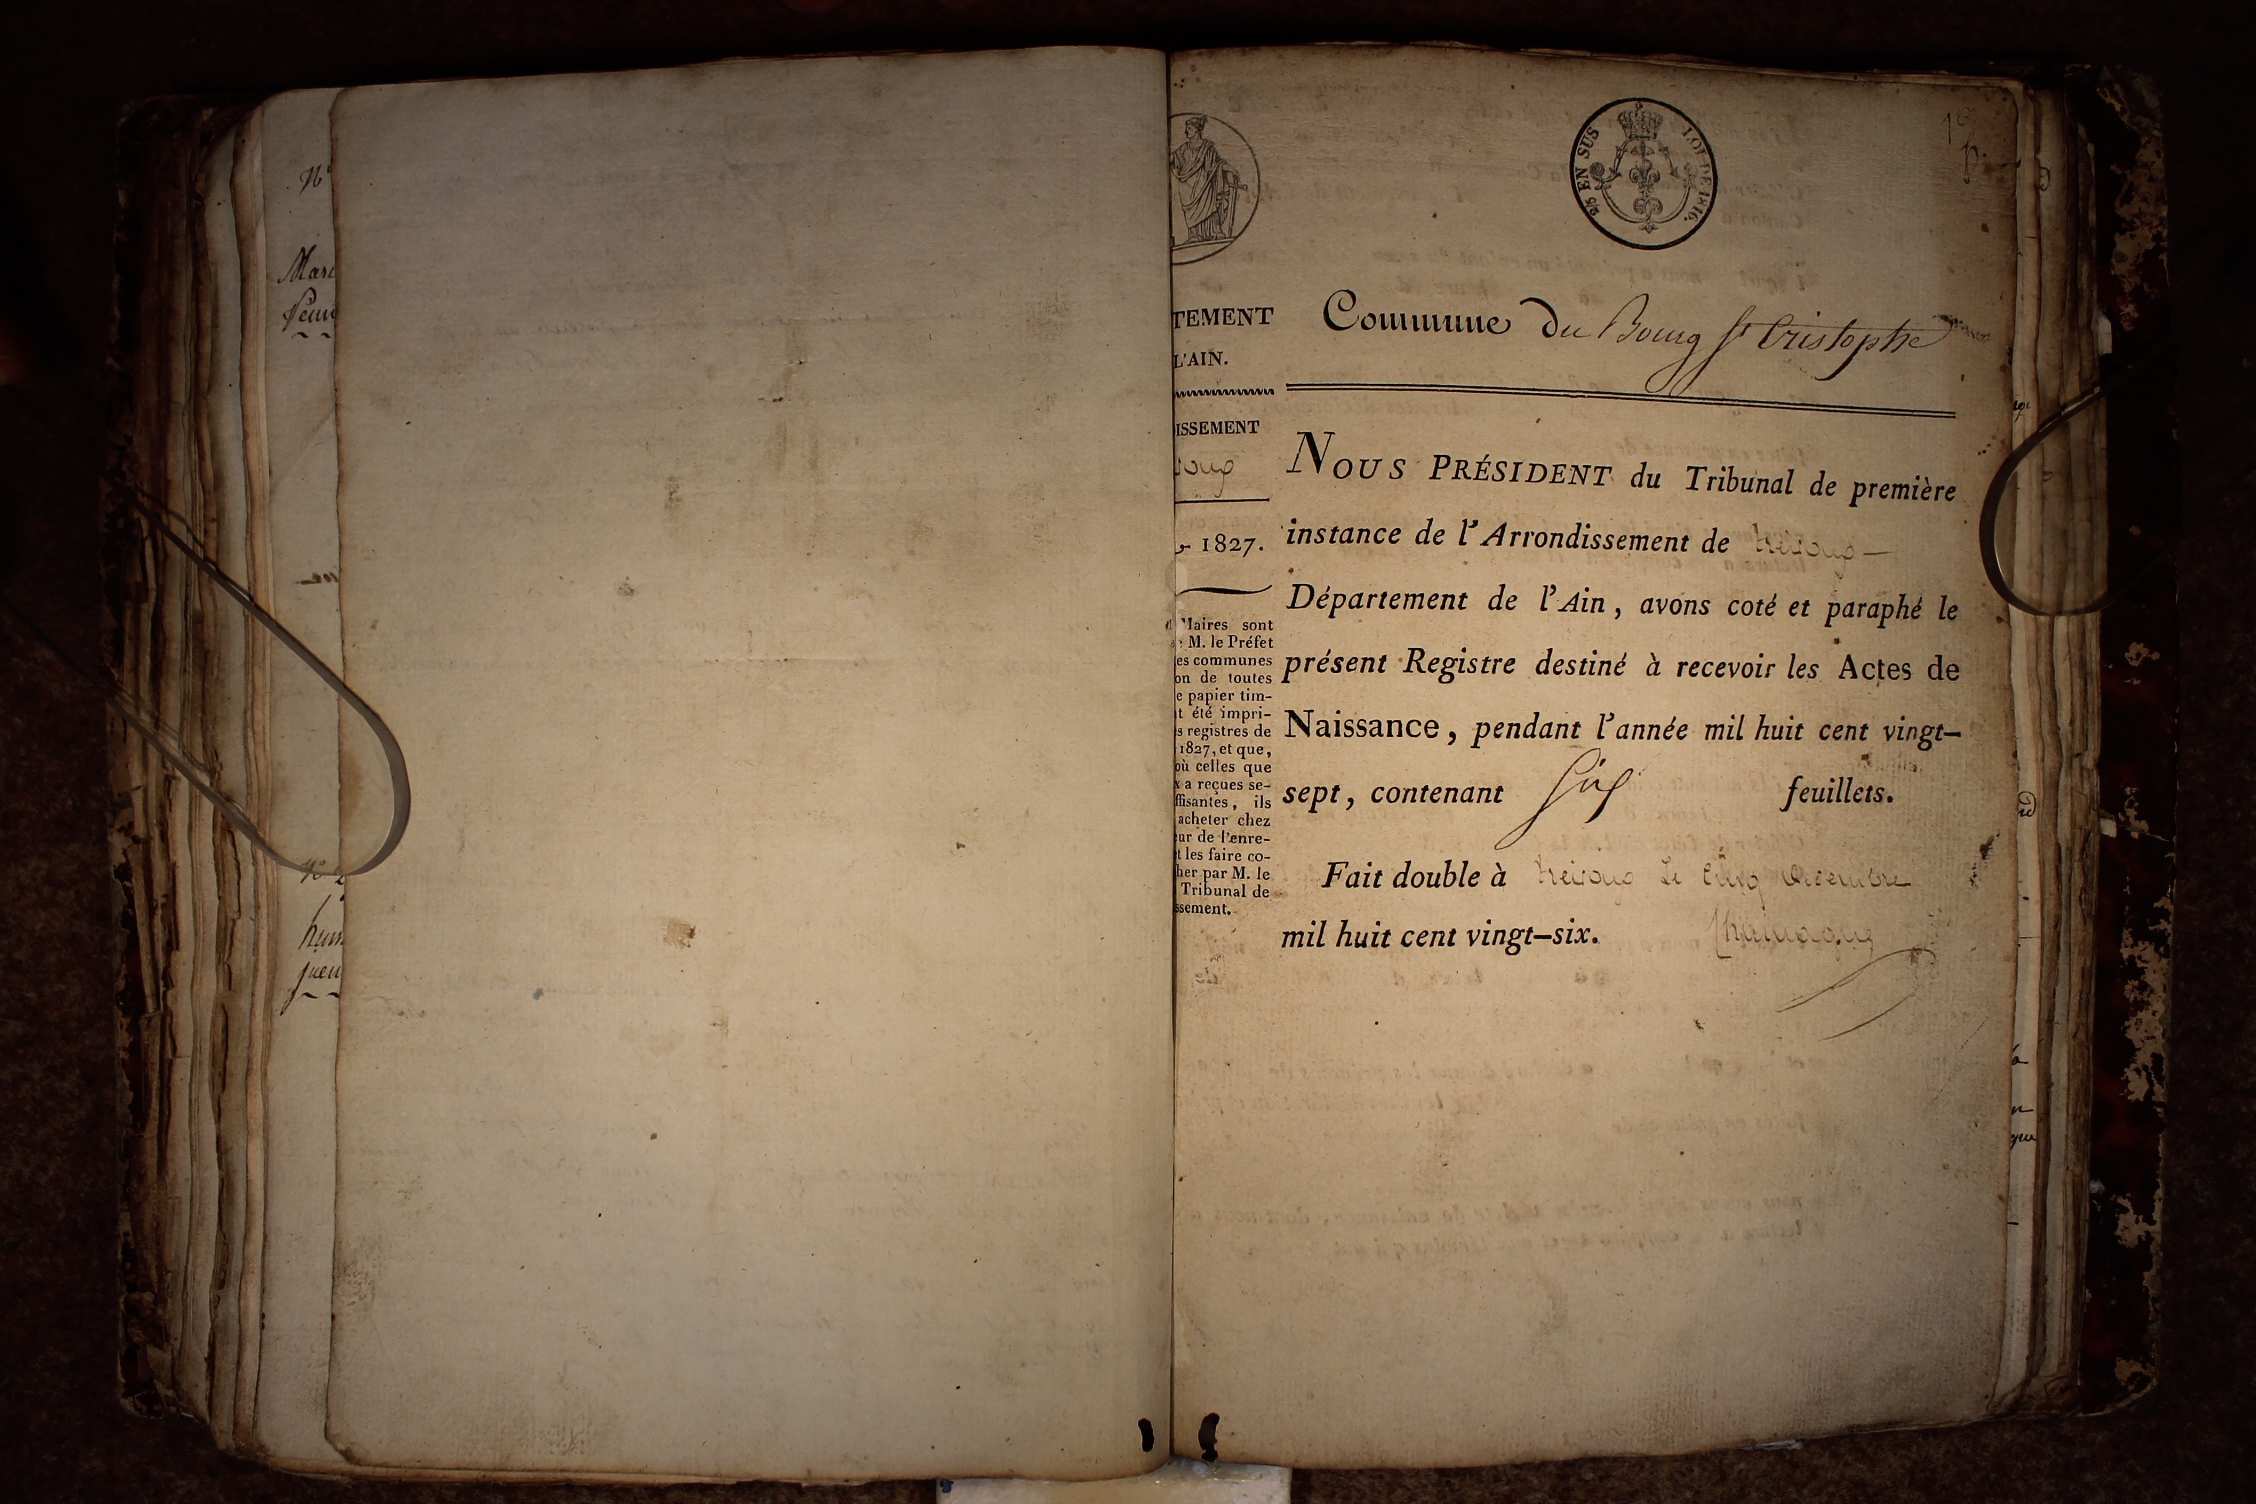 Nº
Mari
TEMENT
L'AIN.
ISSEMENT
1827.
Maires sont
M. le Préfet
es communes
on de toutes
e papier tim-
t été impri-
s registres de
1827, et que,
où celles que
x a reçues se-
ffisantes, ils
acheter chez
ur de l'enre-
t les faire co-
her par M. le
Tribunal de
ssement.
2/5 EN SUS LOI DE 1816.
Commune du Bourg St Cristophe
NOUS PRÉSIDENT du Tribunal de première
instance de l'Arrondissement de Trévoux
Département de l'Ain, avons coté et paraphé le
présent Registre destiné à recevoir les Actes de
Naissance, pendant l'année mil huit cent vingt-
sept, contenant Six feuillets.
Fait double à Trevoux Le cinq Decembre
mil huit cent vingt-six.